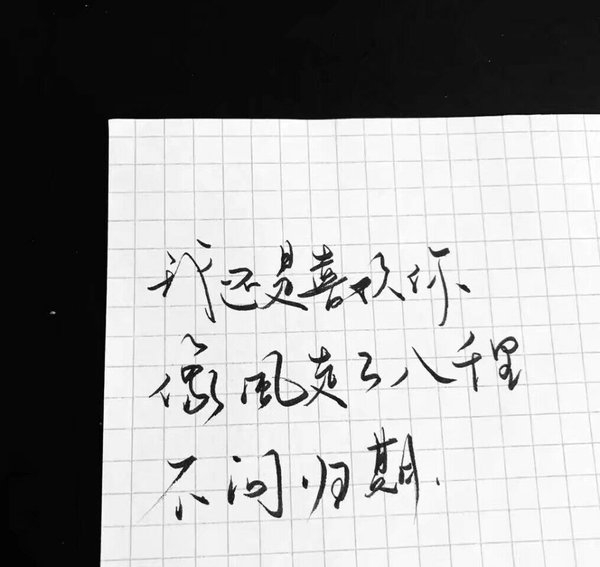 我还是喜欢你
像風走了八千里
不问归期.